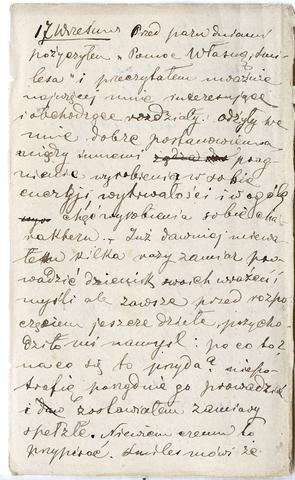 17 Wrzesień Przed paru dniami
pożyczyłem „Pomoc Własną Smi-
lesa" i przeczytałem uważnie
najwięcej mnie interesujące
i obchodzące rozdziały. Odżyły we
mnie dobre postanowienia
między innemi prag-
nienie wyrobienia w sobie
energji, wytrwałości i w ogóle
chęć wyrobienia sobie cha-
rakteru. Już dawniej miewa-
łem kilka razy zamiar pro-
wadzić dziennik swoich wrażeń i
myśli ale zawsze przed rozpo-
częciem jeszcze dzieła, przycho-
dziło mi na myśl: po co to i
na co się to przyda? nie po-
trafię porządnie go prowadzić
i zostawiałem zamiary
spełzłe. Niewiem czemu to
przypisać. Smiles mówi że